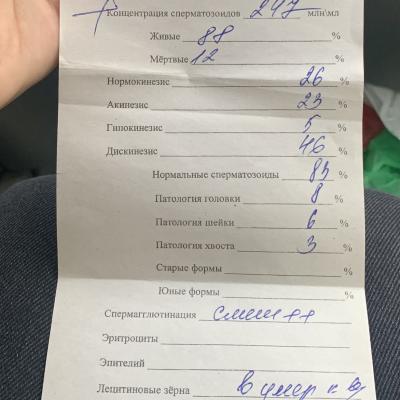 Концентрация сперматозоидов 247 млн\мл
Живые 88 %
Мёртвые 12 %
Нормокинезис 26 %
Акинезис 23 %
Гипокинезис 5 %
Дискинезис 46 %
Нормальные сперматозоиды 83 %
Патология головки 8 %
Патология шейки 6 %
Патология хвоста 3 %
Старые формы %
Юные формы %
Спермагглютинация смеш ++
Эритроциты
Эпителий
Лецитиновые зёрна в умер к